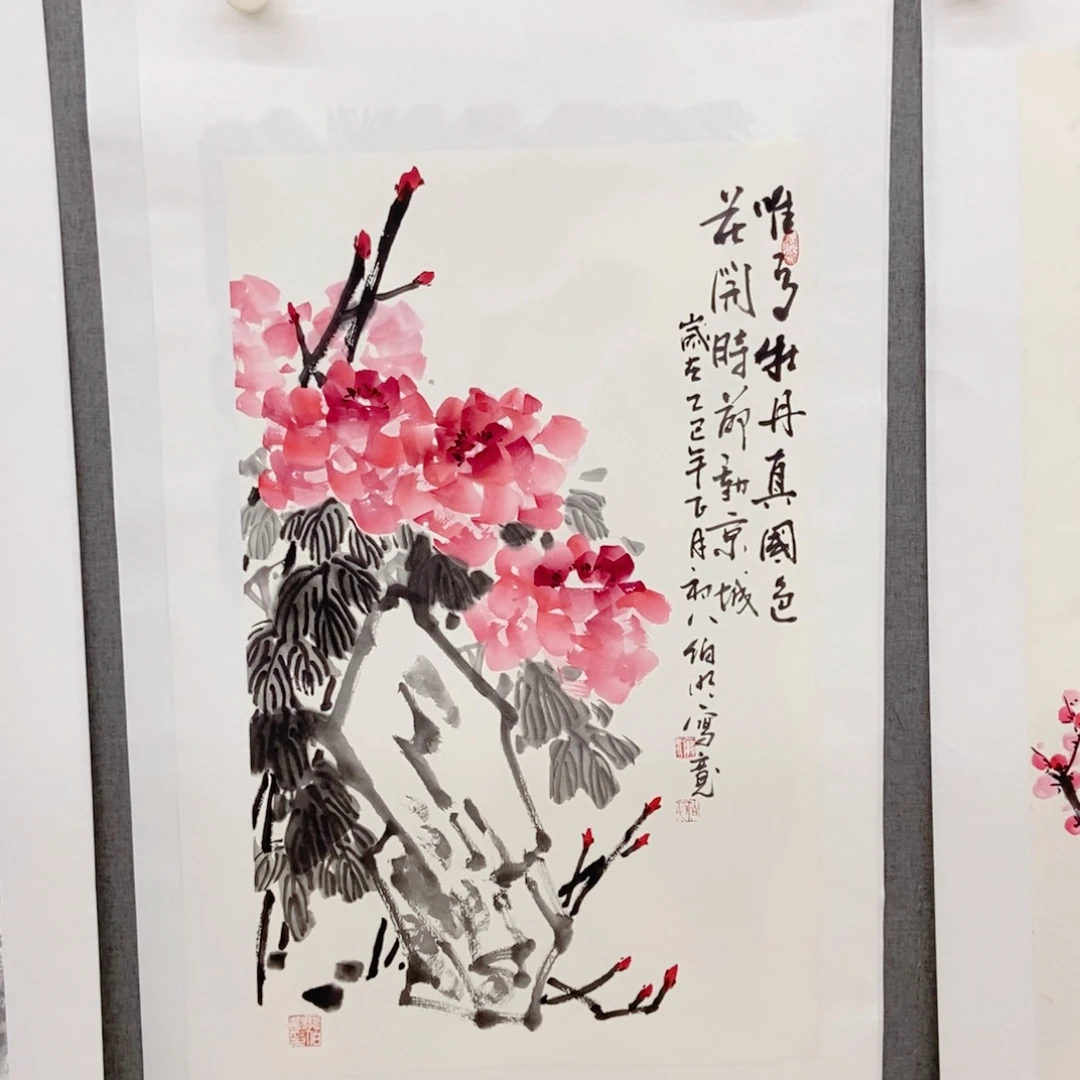 唯有牡丹真國色
花開時節動京城
歲在乙巳年正月初八伯寫竟